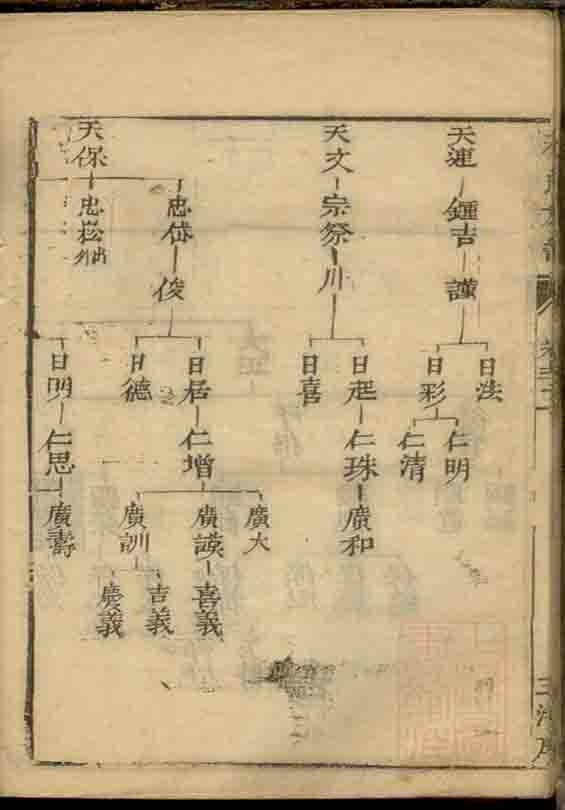 天連 鍾吉 謹
日法
日彩
仁明
仁清
天文 宗祭 川
日起 仁珠 廣和
日喜
天保
忠岱 俊
日居 仁增
廣大
廣謨 喜義
廣訓
吉義
慶義
日德
忠崧 出外
日明 仁思 廣壽